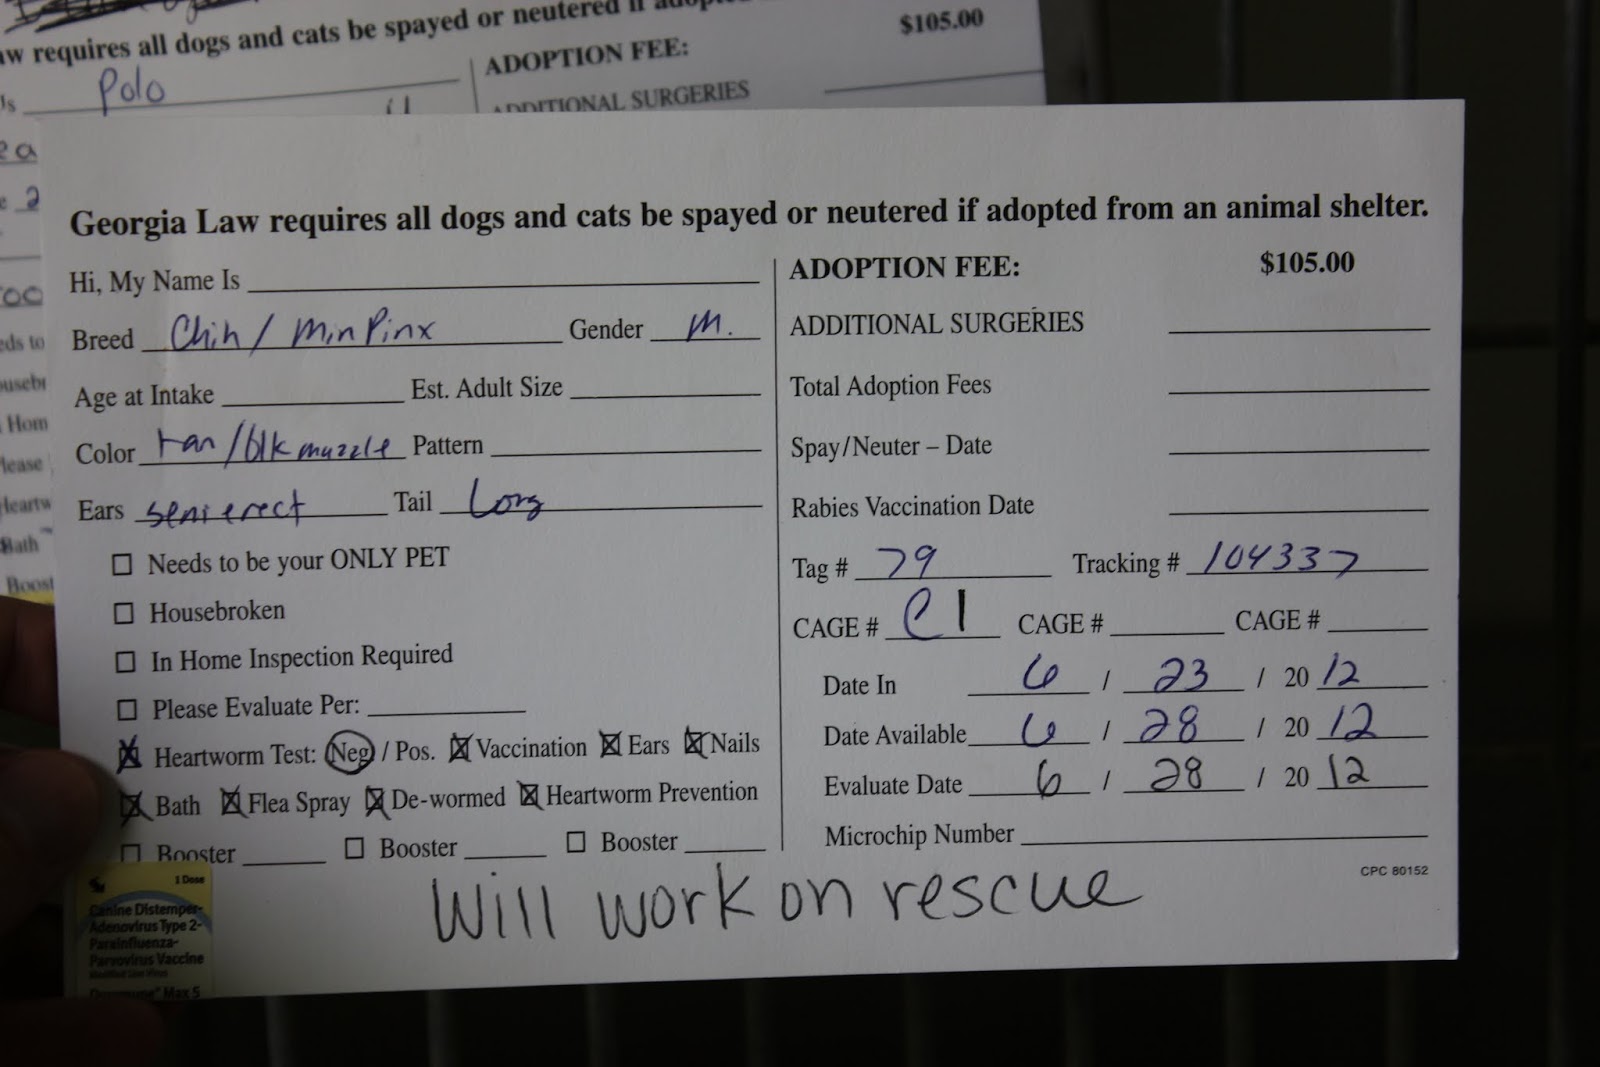 aw requires all dogs and cats be spayed or neutered if
ADOPTION FEE: $105.00
Is Polo
ADDITIONAL SURGERIES
Georgia Law requires all dogs and cats be spayed or neutered if adopted from an animal shelter.
Hi, My Name Is
Breed Chih / Min Pinx Gender M.
Age at Intake Est. Adult Size
Color tan/blk muzzle Pattern
Ears semi erect Tail Long
☐ Needs to be your ONLY PET
☐ Housebroken
☐ In Home Inspection Required
☐ Please Evaluate Per:
☒ Heartworm Test: Neg / Pos. ☒ Vaccination ☒ Ears ☒ Nails
☒ Bath ☒ Flea Spray ☒ De-wormed ☒ Heartworm Prevention
☐ Booster ☐ Booster ☐ Booster
ADOPTION FEE: $105.00
ADDITIONAL SURGERIES
Total Adoption Fees
Spay/Neuter – Date
Rabies Vaccination Date
Tag # 79 Tracking # 104337
CAGE # C1 CAGE # CAGE #
Date In 6 / 23 / 2012
Date Available 6 / 28 / 2012
Evaluate Date 6 / 28 / 2012
Microchip Number
CPC 80152
Will work on rescue
1 Dose
Canine Distemper-
Adenovirus Type 2-
Parainfluenza-
Parvovirus Vaccine
Modified Live Virus
Max 5
eds to
Hom
lease
Heartw
Bath
Boost